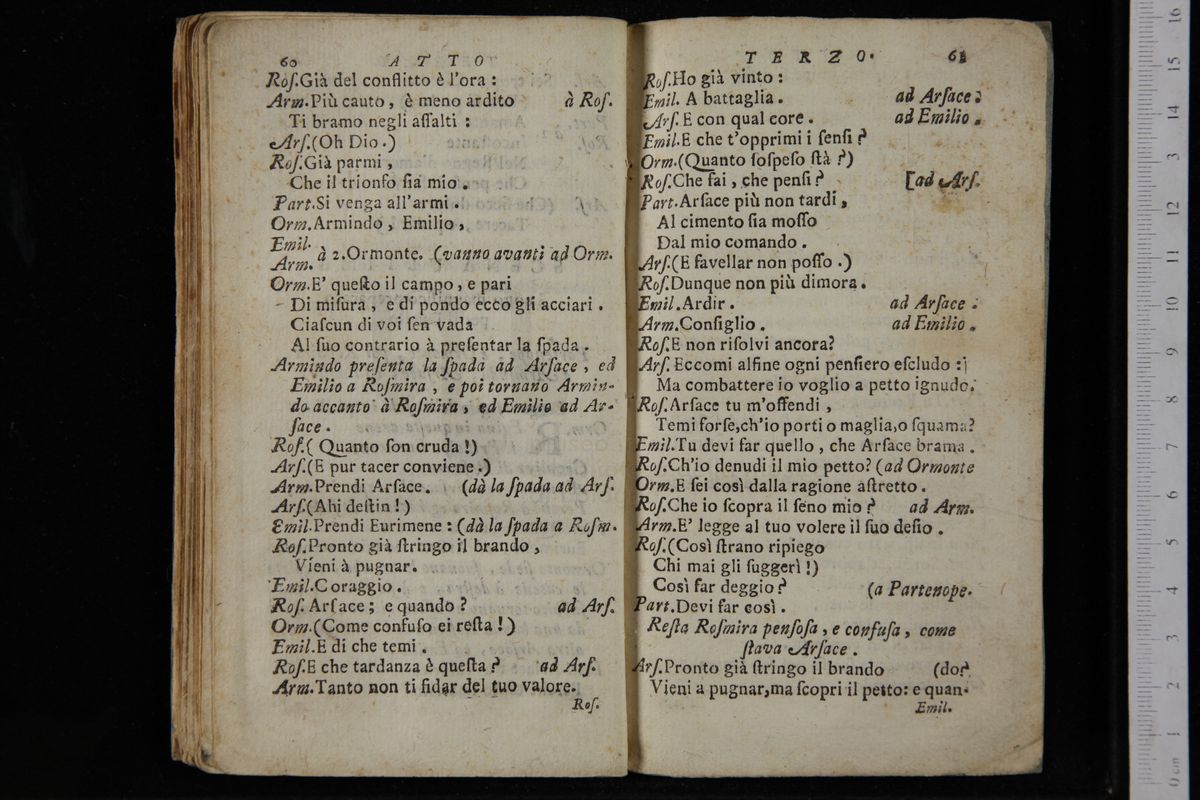 60 A T T O
Roſ.Già del conflitto è l'ora :
Arm.Più cauto, è meno ardito à Roſ.
Ti bramo negli aſſalti :
Arſ.(Oh Dio.)
Roſ.Già parmi,
Che il trionfo ſia mio.
Part.Si venga all'armi.
Orm.Armindo, Emilio,
Emil.
Arm. à 2.Ormonte. (vanno avanti ad Orm.
Orm.E' queſto il campo, e pari
Di miſura, e di pondo ecco gli acciari.
Ciaſcun di voi ſen vada
Al ſuo contrario à preſentar la ſpada.
Armindo preſenta la ſpada ad Arſace, ed
Emilio a Roſmira, e poi tornano Armin-
do accanto à Roſmira, ed Emilio ad Ar-
ſace.
Roſ.( Quanto ſon cruda !)
Arſ.(E pur tacer conviene.)
Arm.Prendi Arſace. (dà la ſpada ad Arſ.
Arſ.(Ahi deſtin !)
Emil.Prendi Eurimene : (dà la ſpada a Roſm.
Roſ.Pronto già ſtringo il brando,
Vieni à pugnar.
Emil.Coraggio.
Roſ. Arſace; e quando ? ad Arſ.
Orm.(Come confuſo ei reſta !)
Emil.E di che temi.
Roſ.E che tardanza è queſta ? ad Arſ.
Arm.Tanto non ti fidar del tuo valore.
Roſ.
T E R Z O. 61
Roſ.Ho già vinto :
Emil. A battaglia. ad Arſace.
Arſ.E con qual core. ad Emilio.
Emil.E che t'opprimi i ſenſi ?
Orm.(Quanto ſoſpeſo ſtà ?)
Roſ.Che fai, che penſi ? [ad Arſ.
Part.Arſace più non tardi,
Al cimento ſia moſſo
Dal mio comando.
Arſ.(E favellar non poſſo.)
Roſ.Dunque non più dimora.
Emil.Ardir. ad Arſace.
Arm.Conſiglio. ad Emilio.
Roſ.E non riſolvi ancora?
Arſ.Eccomi alfine ogni penſiero eſcludo :
Ma combattere io voglio a petto ignudo.
Roſ.Arſace tu m'offendi,
Temi forſe,ch'io porti o maglia,o ſquama?
Emil.Tu devi far quello, che Arſace brama.
Roſ.Ch'io denudi il mio petto? (ad Ormonte
Orm.E ſei così dalla ragione aſtretto.
Roſ.Che io ſcopra il ſeno mio ? ad Arm.
Arm.E' legge al tuo volere il ſuo deſio.
Roſ.(Così ſtrano ripiego
Chi mai gli ſuggerì !)
Così far deggio ? (a Partenope.
Part.Devi far così.
Reſta Roſmira penſoſa, e confuſa, come
ſtava Arſace.
Arſ.Pronto già ſtringo il brando (do?
Vieni a pugnar,ma ſcopri il petto: e quan-
Emil.
16
15
14
13
12
11
10
9
8
7
6
5
4
3
2
1
0 cm